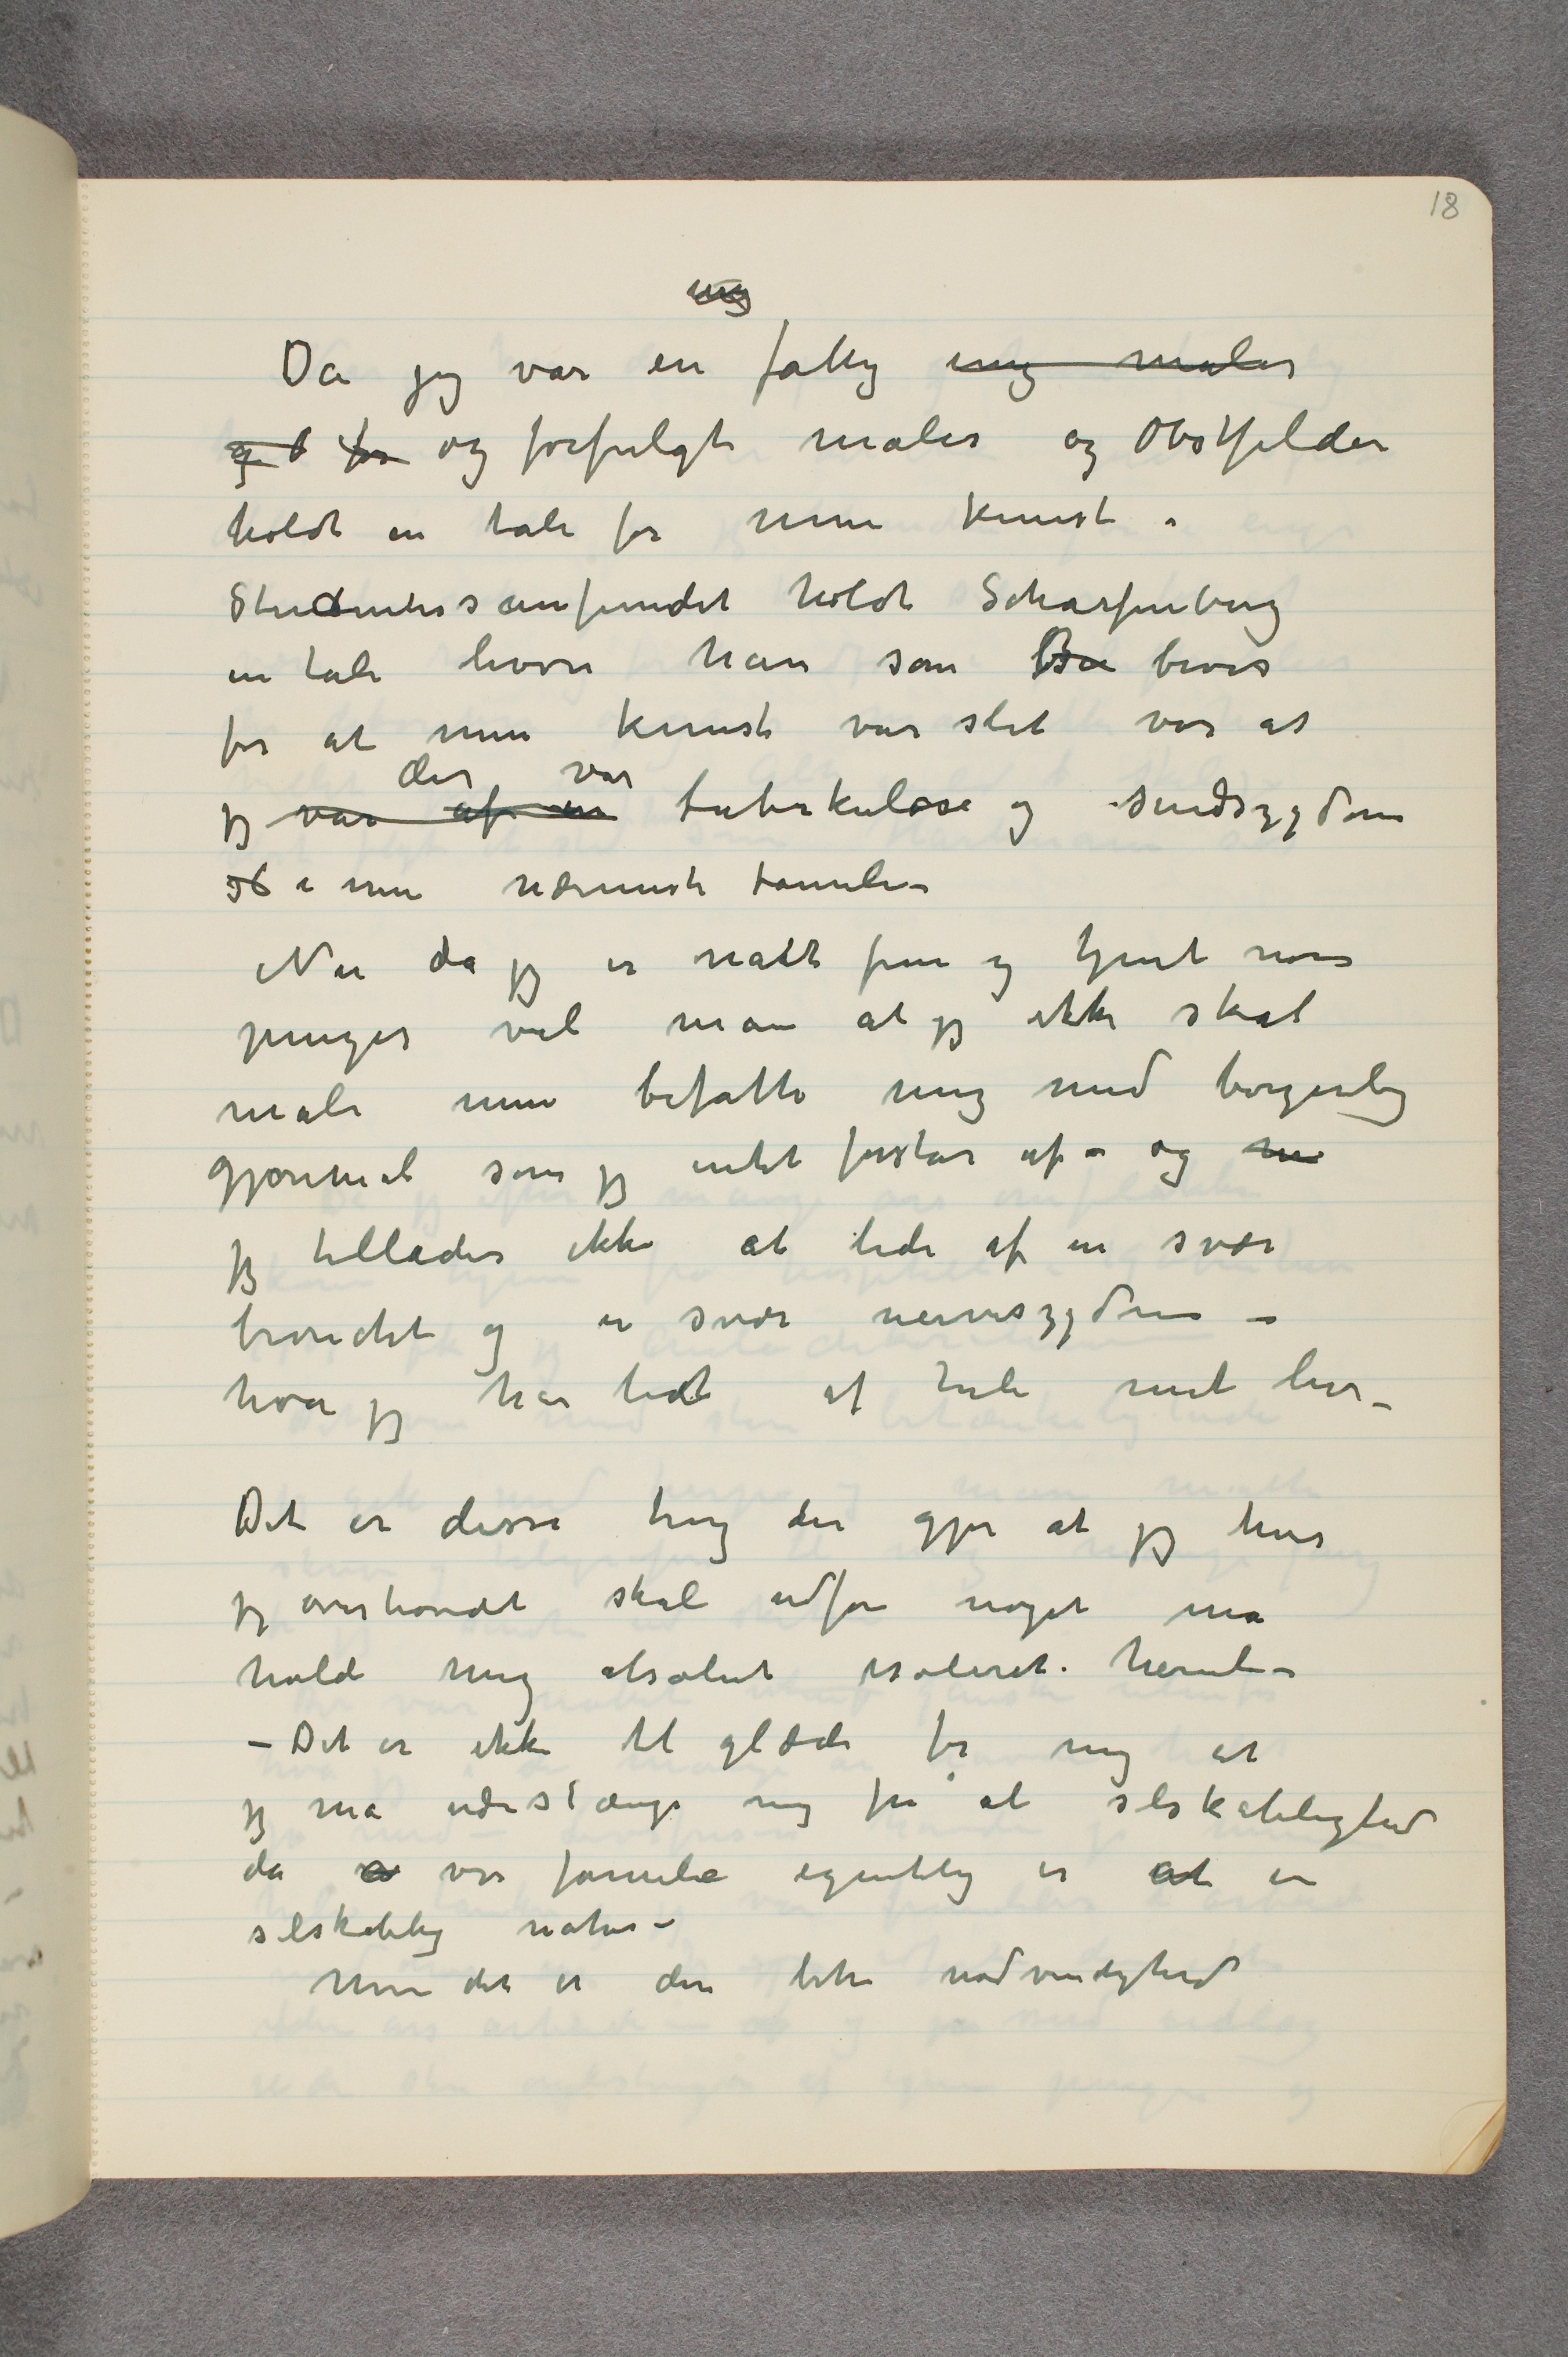 18
ung
Da jeg var en fattig ung maler
og O for og forfulgt maler og Obstfelder
holdt en tale for min kunst i
Studentersamfundet holdt Scharfenberg
en tale hvori han som Be bevis
for at min kunst var slet var at
der var
jeg var af en tuberkulose og sindsygdom
i min nærmeste familie –
Nu da jeg er nått frem og tjent noen
penger vil man at jeg ikke skal
male men befatte mig med borgerlig
gjøremål som jeg intet forstår af – og m
jeg tillades ikke at lide af en svær
bronchit og en svær nervesygdom –
hva jeg har lidt af hele mit liv –
Det er disse ting der gjør at jeg hvis
jeg overhovedet skal udføre noget må
holde mig absolut isoleret. hjemle –
– Det er ikke til glæde for mig at
jeg må udestænge mig fra al selskabelighed
da vor familie egentlig er at en
selskabelig natur –
Men det er den bitre nødvendighed